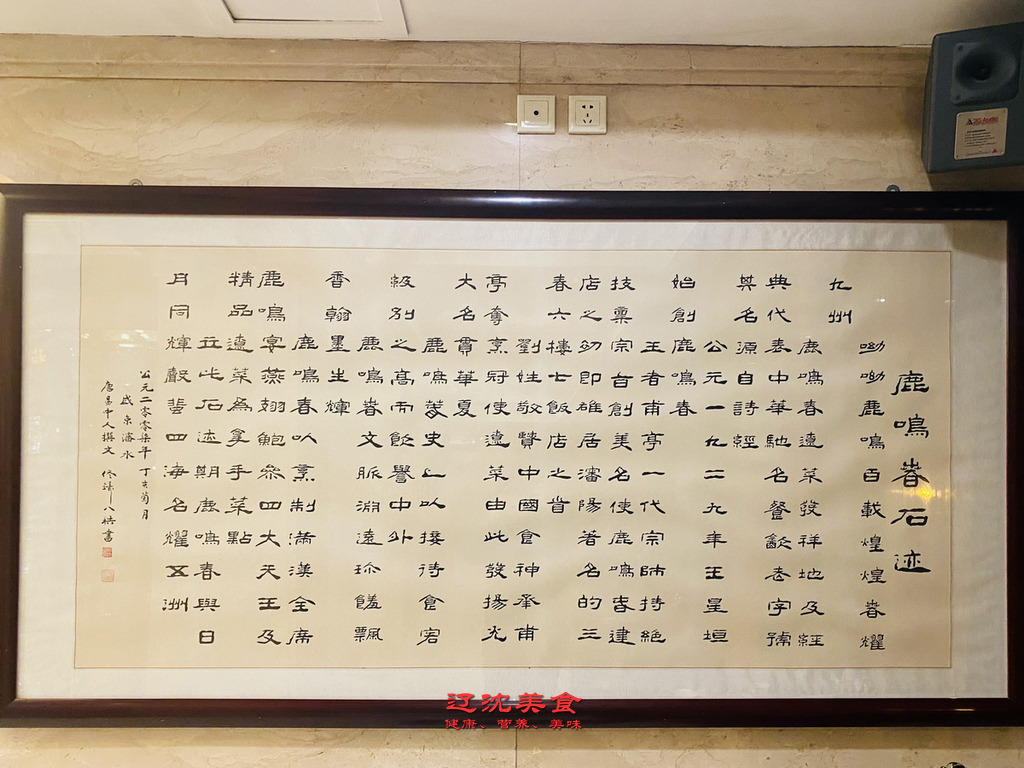 鹿鳴春石迹
呦呦鹿鳴百載煌煌春耀
九州
鹿鳴春遼菜發祥地及經
典代表中華馳名餐飲老字號
其名源自詩經
公元一九二九年王星垣
始創鹿鳴春
王者甫亭一代宗師持絕
技稟宗首創美名使鹿鳴春建
店之初即雄居瀋陽著名的三
春六樓七飯店之首
劉姓敬賢中國食神承甫
亭奪烹冠使遼菜由此發揚光
大名貫華夏
鹿鳴蔞史上以接待食宕
級别之高而飯譽中外
鹿鳴春文脈淵遠珍饈飄
香翰墨生輝
鹿鳴春以烹制滿漢全席
鹿鳴宴燕翅鮑參四大天王及
精品遼菜為拿手菜點
立此石述期鹿鳴春與日
月同輝聲蜚四海名耀五洲
公元二零零柒年丁亥菊月
東瀋水
唐昌中人撰文 書
辽沈美食
健康、营养、美味